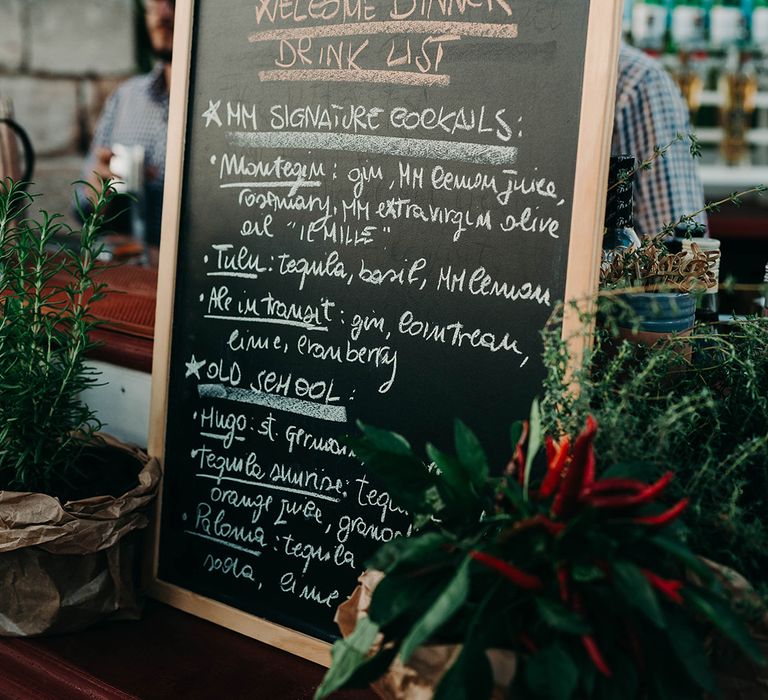 WELCOME DINNER
DRINK LIST
MM SIGNATURE COCKAILS:
Montegin: gin, MM lemon juice,
rosemary, MM extravirgin olive
oil "IL MILLE"
Tulu: tequila, basil, MM lemon
Ale in transit: gin, Cointreau,
lime, cranberry
OLD SCHOOL:
Hugo: st. Germain
Tequila sunrise: tequ
orange juice, grana
Paloma: tequila
soda, lime